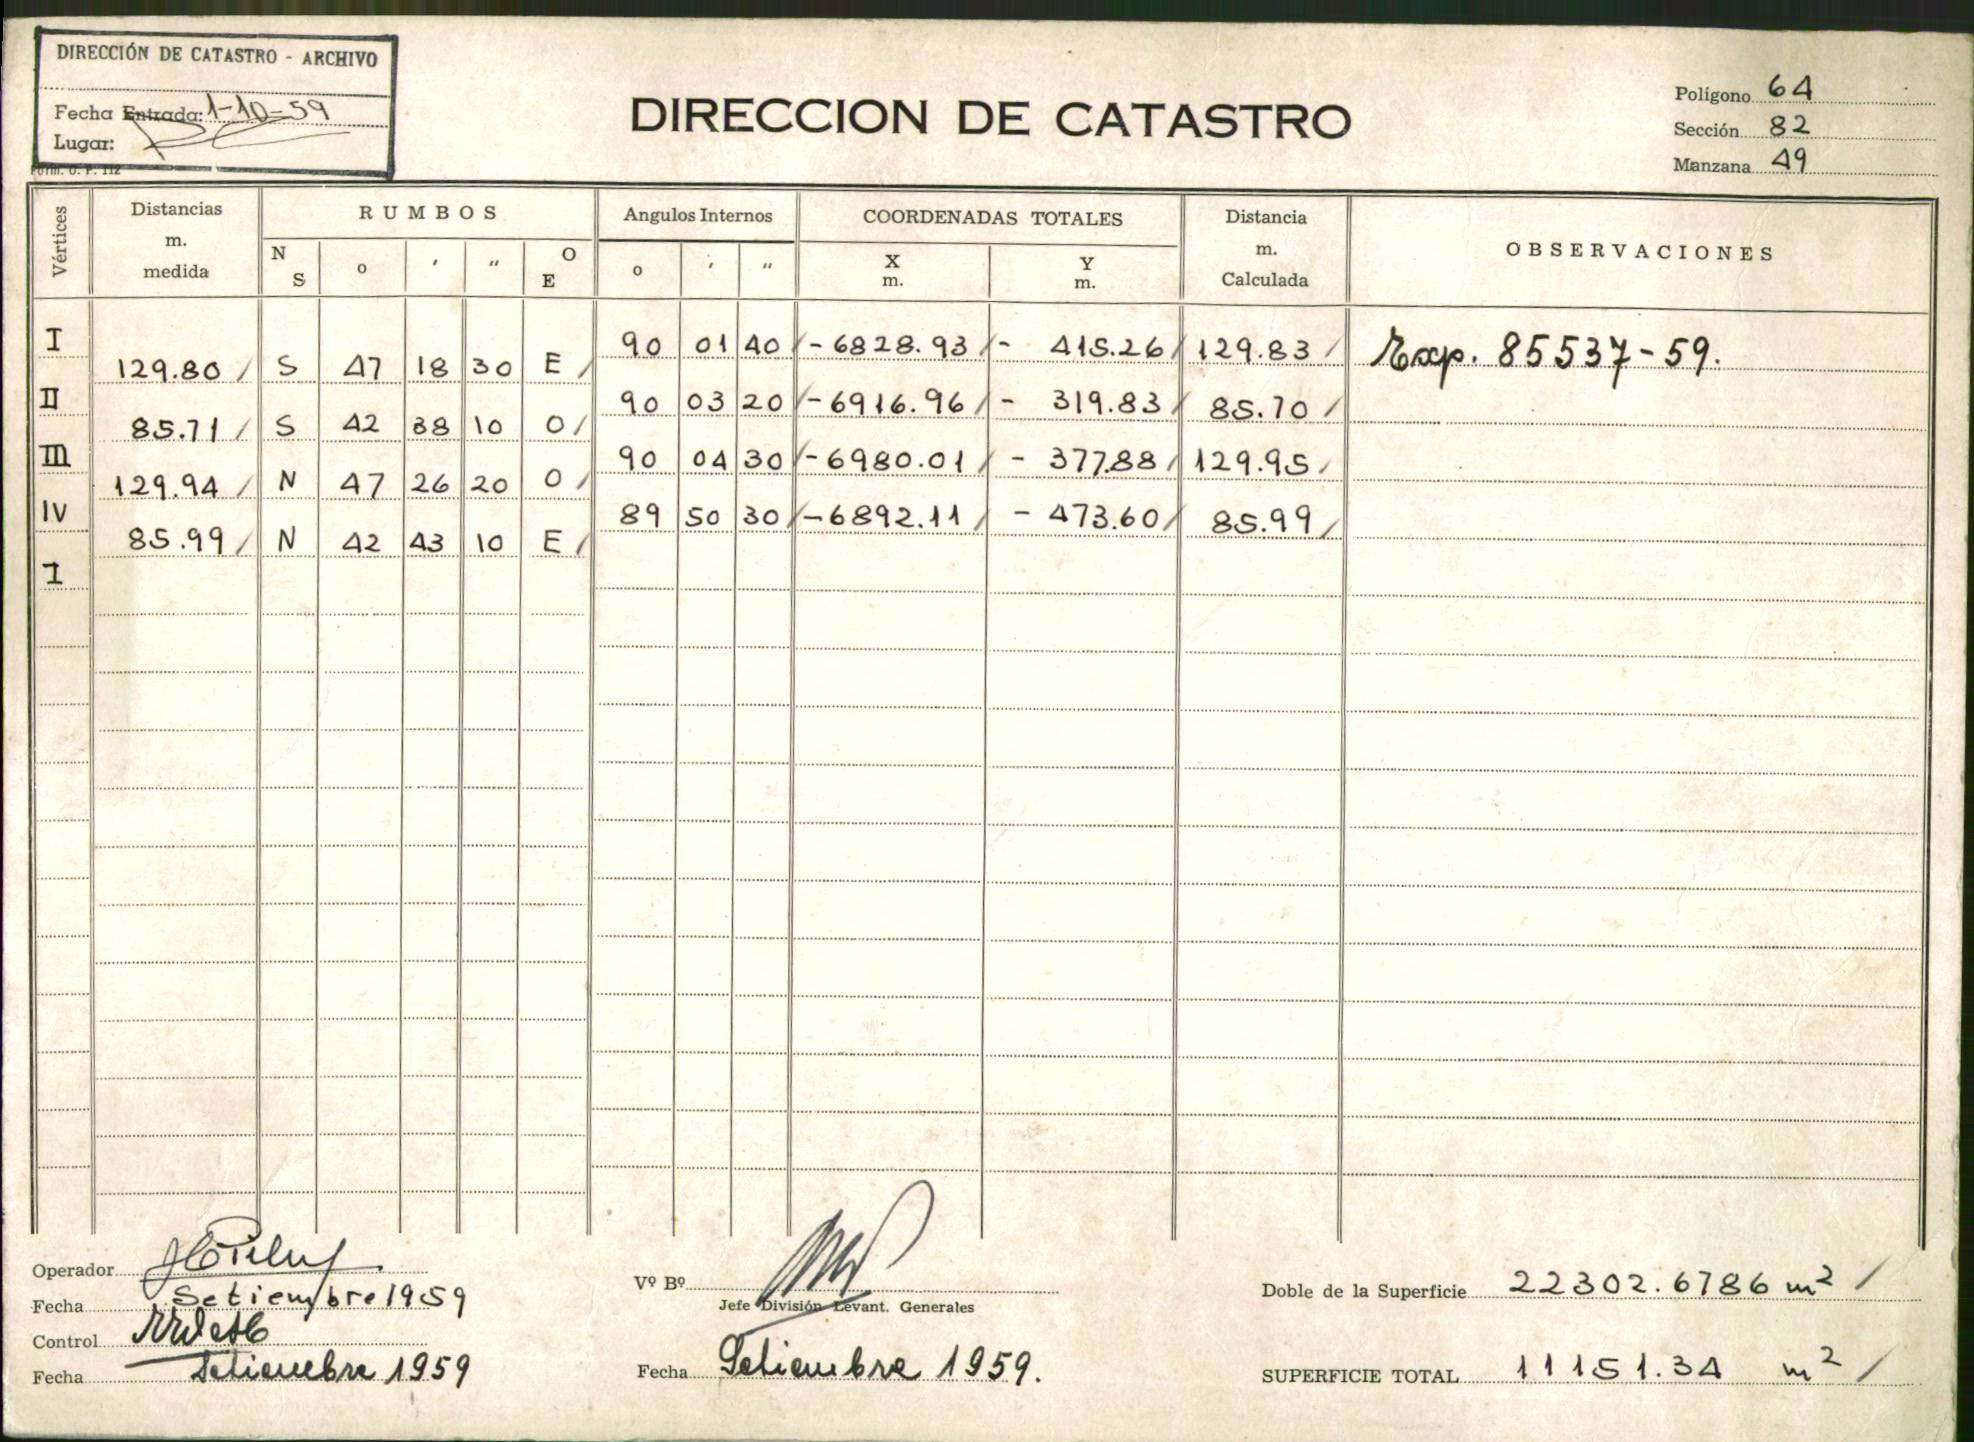 DIRECCIÓN DE CATASTRO - ARCHIVO
Fecha Entrada: 1-10-59
Lugar:
Form. O. P. 112
DIRECCION DE CATASTRO
Polígono 64
Sección 82
Manzana 49
Vértices
Distancias m. medida
RUMBOS
N S o ′ ″ O E
Angulos Internos
o ′ ″
COORDENADAS TOTALES
X m. Y m.
Distancia m. Calculada
OBSERVACIONES
I 90 01 40 / - 6828.93 / - 415.26 / 129.83 / Exp. 85537-59.
129.80 / S 47 18 30 E /
II 90 03 20 / - 6916.96 / - 319.83 / 85.70 /
85.71 / S 42 38 10 O /
III 90 04 30 / - 6980.01 / - 377.88 / 129.95 /
129.94 / N 47 26 20 O /
IV 89 50 30 / - 6892.11 / - 473.60 / 85.99 /
85.99 / N 42 43 10 E /
I
Operador
Fecha Setiembre 1959
Control
Fecha Setiembre 1959
Vº Bº
Jefe División Levant. Generales
Fecha Setiembre 1959.
Doble de la Superficie 22302.6786 m² /
SUPERFICIE TOTAL 11151.34 m² /